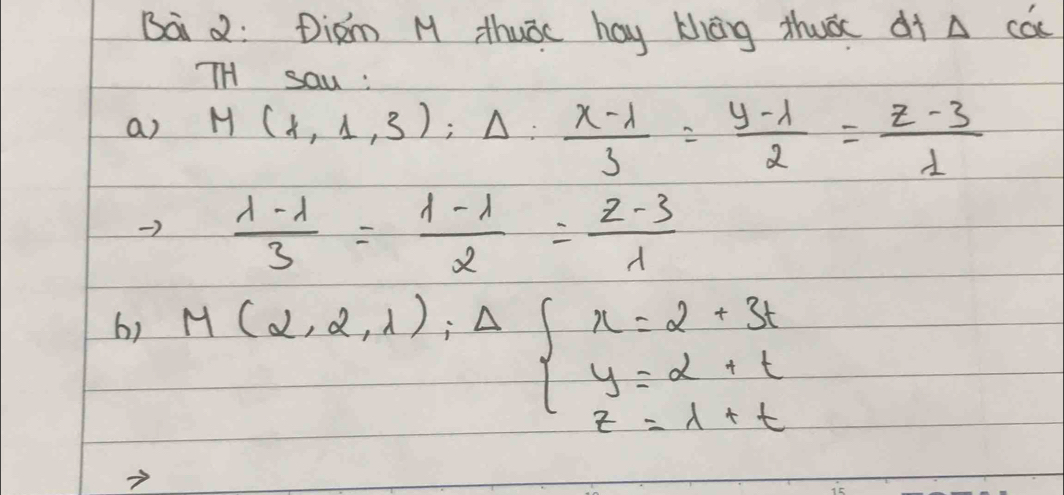 Bài 2: Điểm M thuộc hay không thuộc đt Δ các
TH sau:
a) M (1, 1, 3); Δ: (x-1)/3 = (y-1)/2 = (z-3)/1
→ (1-1)/3 = (1-1)/2 = (z-3)/1
b) M (2, 2, 1); Δ { x = 2 + 3t
y = 2 + t
z = 1 + t
→
15